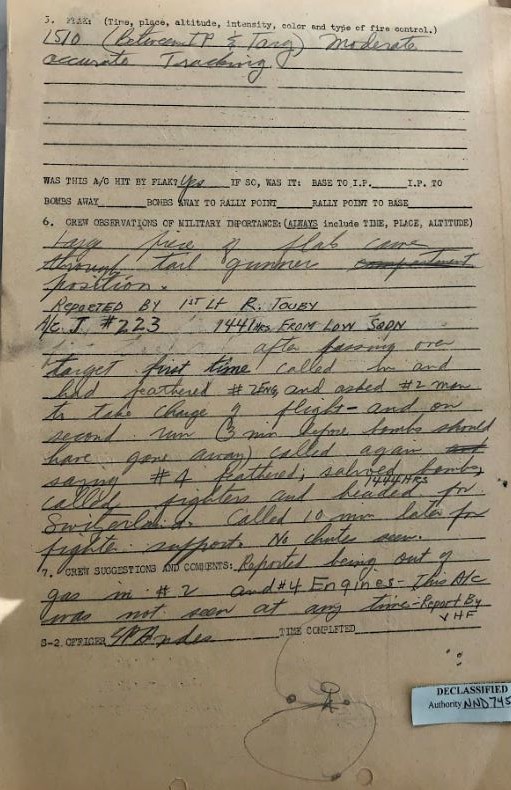 5. FLAK: (Time, place, altitude, intensity, color and type of fire control.)
1510 (Between IP & Targ) Moderate
accurate Tracking
WAS THIS A/C HIT BY FLAK? Yes IF SO, WAS IT: BASE TO I.P. I.P. TO
BOMBS AWAY BOMBS AWAY TO RALLY POINT RALLY POINT TO BASE
6. CREW OBSERVATIONS OF MILITARY IMPORTANCE: (ALWAYS include TIME, PLACE, ALTITUDE)
Large piece of flak came
through tail gunner compartment
position.
REPORTED BY 1ST Lt R. TOUBY
A/C J #223 1441 HRS FROM LOW SQDN
after passing over
target first time called in and
had feathered #2 ENG and asked #2 man
to take charge of flight - and on
second run (3 min before bombs should
have gone away) called again
saying #4 feathered; salvoed bombs,
1444 HRS
called fighters and headed for
Switzerland. Called 10 min later for
fighter support. No chutes seen.
7. CREW SUGGESTIONS AND COMMENTS: Reported being out of
gas in #2 and #4 Engines - This A/c
was not seen at any time - Report By
VHF
S-2 OFFICER TIME COMPLETED
DECLASSIFIED
Authority NND 745